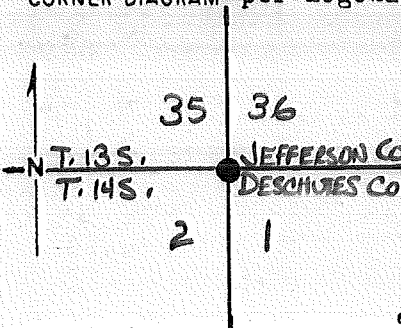 CORNER DIAGRAM per
35 36
N T. 13 S. JEFFERSON CO
T. 14 S. DESCHUTES CO
2 1